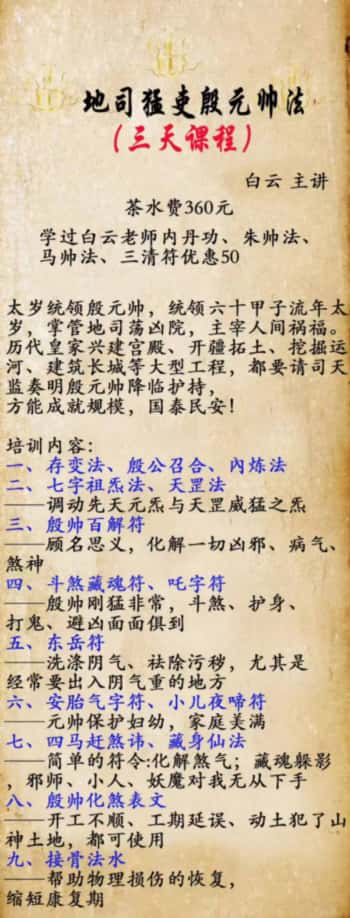 地司猛吏殷元帅法
（三天课程）
白云 主讲
茶水费360元
学过白云老师内丹功、朱帅法、
马帅法、三清符优惠50
太岁统领殷元帅，统领六十甲子流年太
岁，掌管地司荡凶院，主宰人间祸福。
历代皇家兴建宫殿、开疆拓土、挖掘运
河、建筑长城等大型工程，都要请司天
监奏明殷元帅降临护持，
方能成就规模，国泰民安！
培训内容：
一、存变法、殷公召合、內炼法
二、七字祖炁法、天罡法
——调动先天元炁与天罡威猛之炁
三、殷帅百解符
——顾名思义，化解一切凶邪、病气、
煞神
四、斗煞藏魂符、吒字符
——殷帅刚猛非常，斗煞、护身、
打鬼、避凶面面俱到
五、东岳符
——洗涤阴气、祛除污秽，尤其是
经常要出入阴气重的地方
六、安胎气字符、小儿夜啼符
——元帅保护妇幼，家庭美满
七、四马赶煞讳、藏身仙法
——简单的符令:化解煞气；藏魂躲影
，邪师、小人、妖魔对我无从下手
八、殷帅化煞表文
——开工不顺、工期延误、动土犯了山
神土地，都可使用
九、接骨法水
——帮助物理损伤的恢复，
缩短康复期